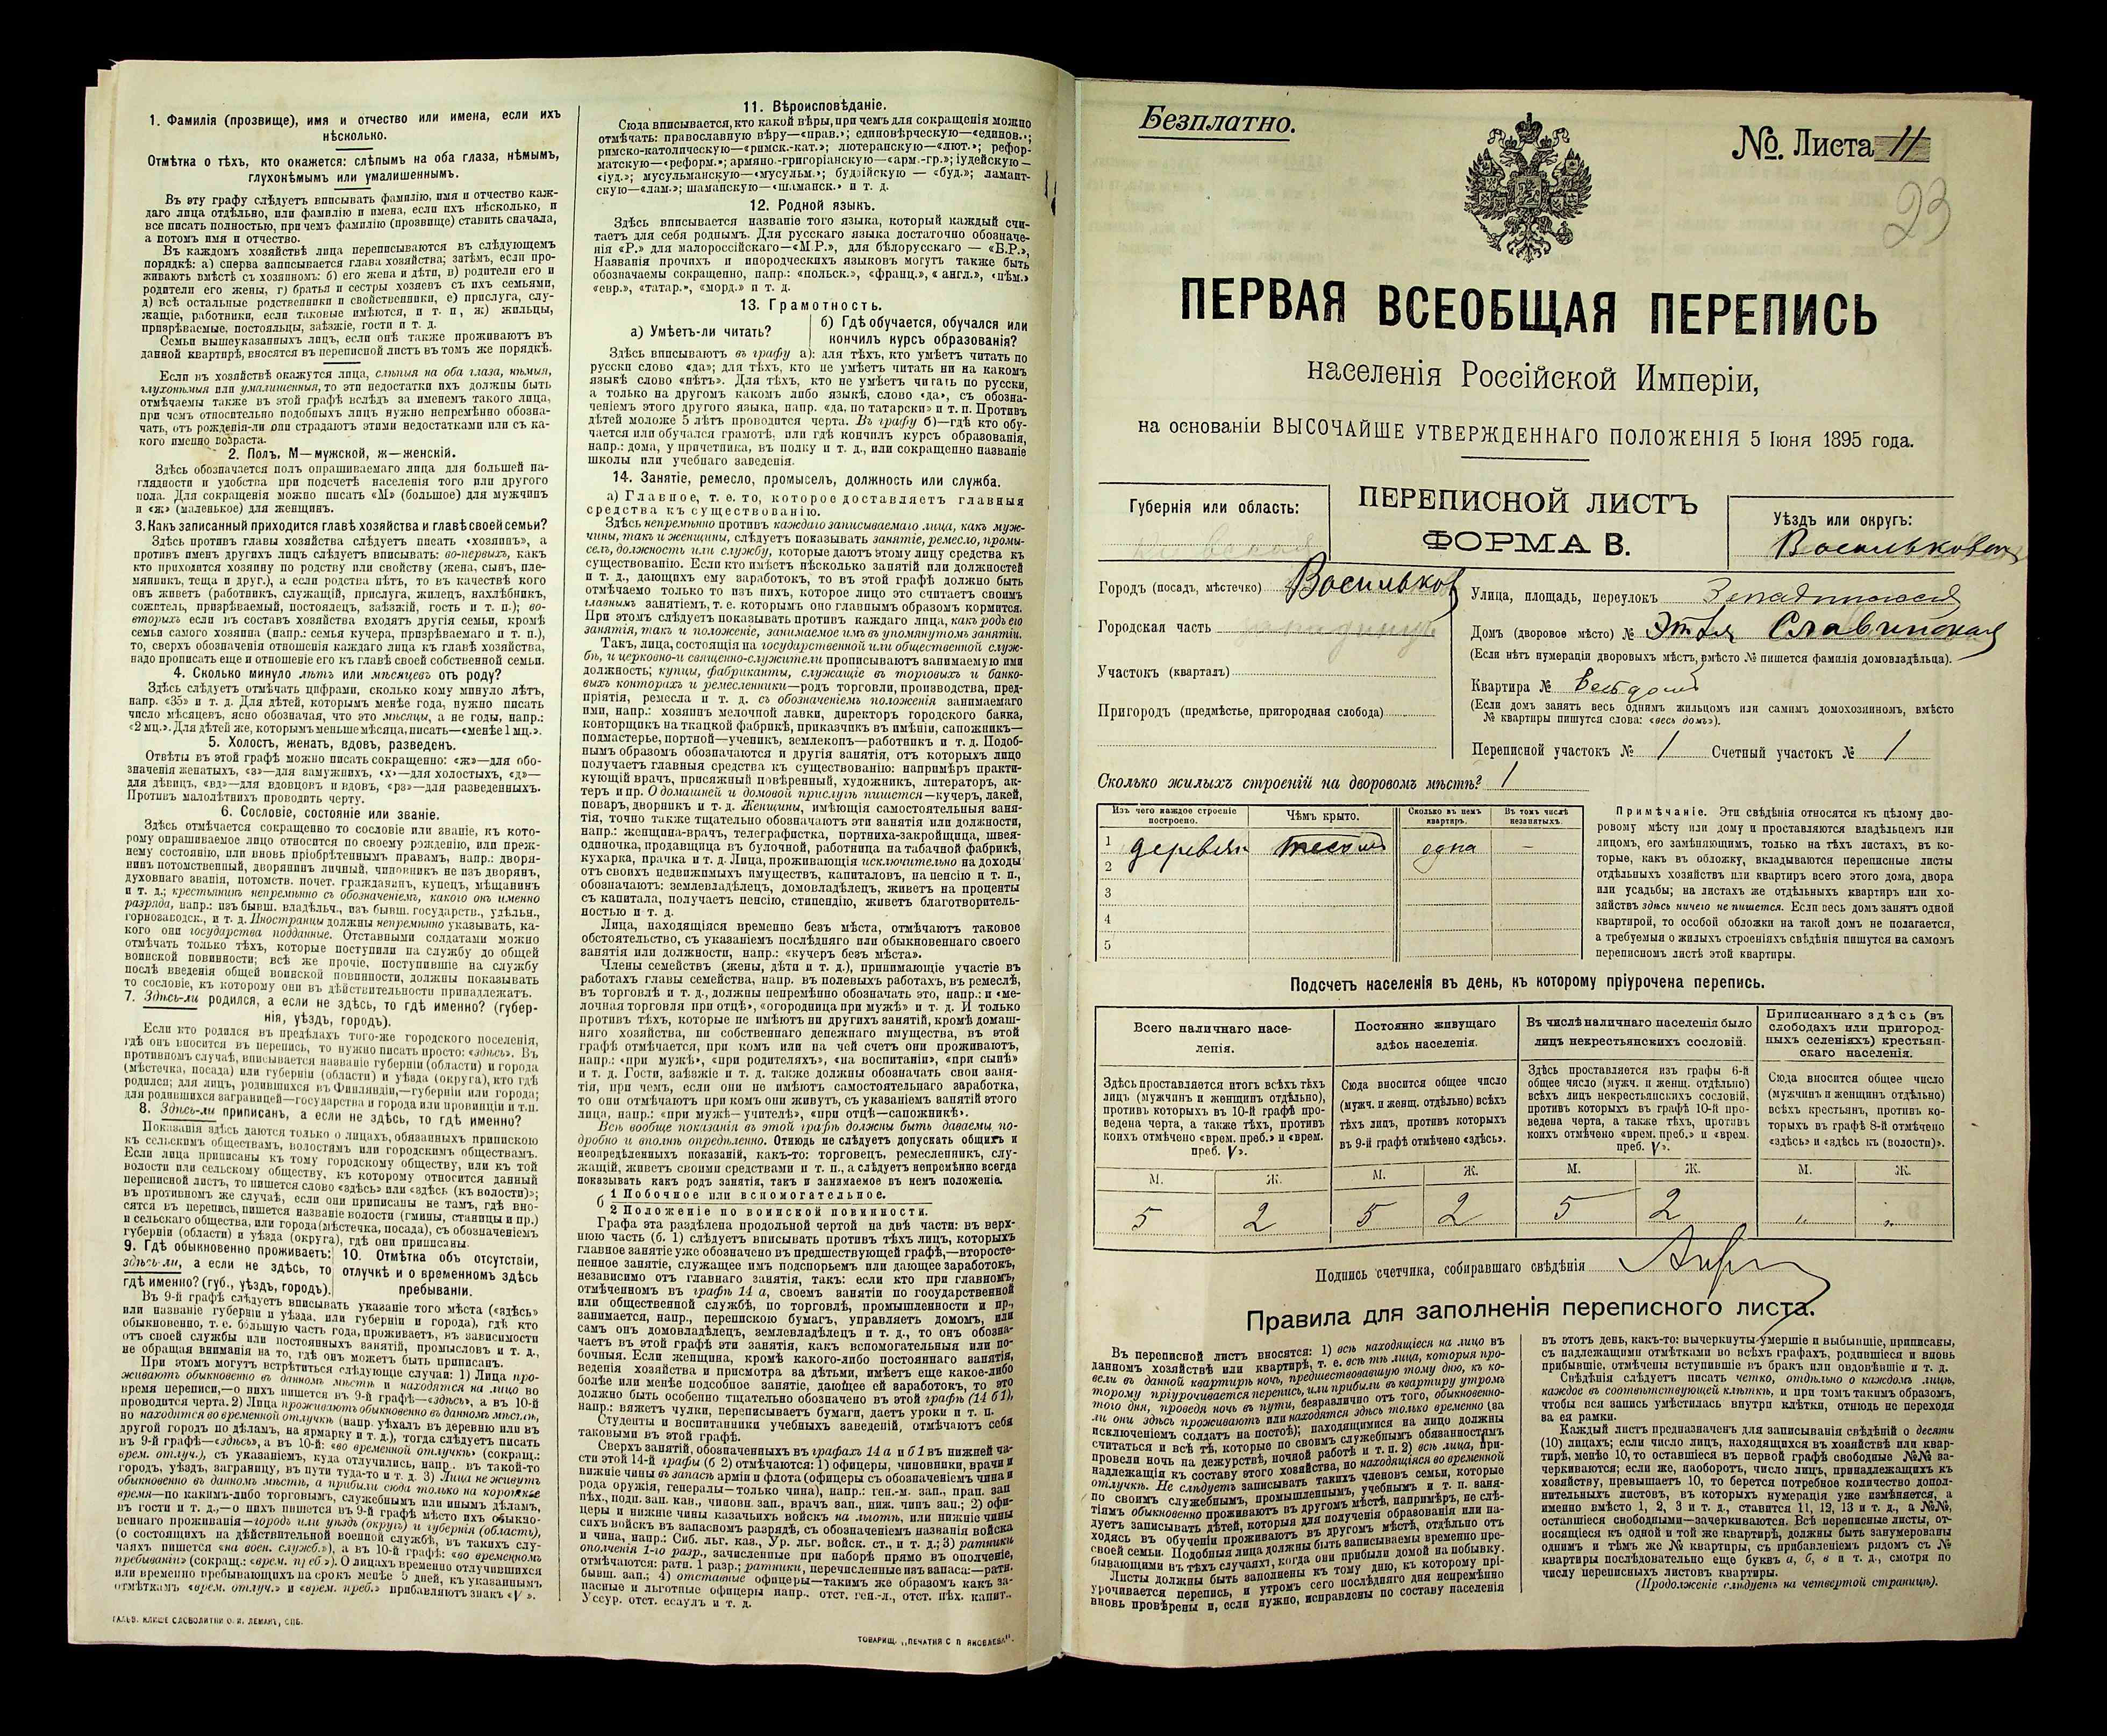 1. Фамилія (прозвище), имя и отчество или имена, если ихъ
нѣсколько.
Отмѣтка о тѣхъ, кто окажется: слѣпымъ на оба глаза, нѣмымъ,
глухонѣмымъ или умалишеннымъ.
Въ эту графу слѣдуетъ вписывать фамилію, имя и отчество каж-
даго лица отдѣльно, или фамилію и имена, если ихъ нѣсколько, и
все писать полностью, при чемъ фамилію (прозвище) ставить сначала,
а потомъ имя и отчество.
Въ каждомъ хозяйствѣ лица переписываются въ слѣдующемъ
порядкѣ: а) сперва записывается глава хозяйства; затѣмъ, если про-
живаютъ вмѣстѣ съ хозяиномъ: б) его жена и дѣти, в) родители его и
родители его жены, г) братья и сестры хозяевъ съ ихъ семьями,
д) всѣ остальные родственники и свойственники, е) прислуга, слу-
жащіе, работники, если таковые имѣются, и т. п, ж) жильцы,
призрѣваемые, постояльцы, заѣзжіе, гости и т. д.
Семьи вышеуказанныхъ лицъ, если онѣ также проживаютъ въ
данной квартирѣ, вносятся въ переписной листъ въ томъ же порядкѣ.
Если въ хозяйствѣ окажутся лица, слѣпыя на оба глаза, нѣмыя,
глухонѣмыя или умалишенныя, то эти недостатки ихъ должны быть
отмѣчаемы также въ этой графѣ вслѣдъ за именемъ такого лица,
при чемъ относительно подобныхъ лицъ нужно непремѣнно обозна-
чать, отъ рожденія-ли они страдаютъ этими недостатками или съ ка-
кого именно возраста.
2. Полъ, М—мужской, ж—женскій.
Здѣсь обозначается полъ опрашиваемаго лица для большей на-
глядности и удобства при подсчетѣ населенія того или другого
пола. Для сокращенія можно писать «М» (большое) для мужчинъ
и «ж» (маленькое) для женщинъ.
3. Какъ записанный приходится главѣ хозяйства и главѣ своей семьи?
Здѣсь противъ главы хозяйства слѣдуетъ писать «хозяинъ», а
противъ именъ другихъ лицъ слѣдуетъ вписывать: во-первыхъ, какъ
кто приходится хозяину по родству или свойству (жена, сынъ, пле-
мянникъ, теща и друг.), а если родства нѣтъ, то въ качествѣ кого
онъ живетъ (работникъ, служащій, прислуга, жилецъ, нахлѣбникъ,
сожитель, призрѣваемый, постоялецъ, заѣзжій, гость и т. п.); во-
вторыхъ если въ составъ хозяйства входятъ другія семьи, кромѣ
семьи самого хозяина (напр.: семья кучера, призрѣваемаго и т. п.),
то, сверхъ обозначенія отношенія каждаго лица къ главѣ хозяйства,
надо прописать еще и отношеніе его къ главѣ своей собственной семьи.
4. Сколько минуло лѣтъ или мѣсяцевъ отъ роду?
Здѣсь слѣдуетъ отмѣчать цифрами, сколько кому минуло лѣтъ,
напр. «35» и т. д. Для дѣтей, которымъ менѣе года, нужно писать
число мѣсяцевъ, ясно обозначая, что это мѣсяцы, а не годы, напр.:
«2 мц.». Для дѣтей же, которымъ меньше мѣсяца, писать—«менѣе 1 мц.».
5. Холостъ, женатъ, вдовъ, разведенъ.
Отвѣты въ этой графѣ можно писать сокращенно: «ж»—для обо-
значенія женатыхъ, «з»—для замужнихъ, «х»—для холостыхъ, «д»—
для дѣвицъ, «вд»—для вдовцовъ и вдовъ, «рз»—для разведенныхъ.
Противъ малолѣтнихъ проводить черту.
6. Сословіе, состояніе или званіе.
Здѣсь отмѣчается сокращенно то сословіе или званіе, къ кото-
рому опрашиваемое лицо относится по своему рожденію, или преж-
нему состоянію, или вновь пріобрѣтеннымъ правамъ, напр.: дворя-
нинъ потомственный, дворянинъ личный, чиновникъ не изъ дворянъ,
духовнаго званія, потомств. почет. гражданинъ, купецъ, мѣщанинъ
и т. д.; крестьянинъ непремѣнно съ обозначеніемъ, какого онъ именно
разряда, напр.: изъ бывш. владѣльч., изъ бывш. государств., удѣльн.,
горнозаводск., и т. д. Иностранцы должны непремѣнно указывать, ка-
кого они государства подданные. Отставными солдатами можно
отмѣчать только тѣхъ, которые поступили на службу до общей
воинской повинности; всѣ же прочіе, поступившіе на службу
послѣ введенія общей воинской повинности, должны показывать
то сословіе, къ которому они въ дѣйствительности принадлежатъ.
7. Здѣсь-ли родился, а если не здѣсь, то гдѣ именно? (губер-
нія, уѣздъ, городъ).
Если кто родился въ предѣлахъ того-же городского поселенія,
гдѣ онъ вносится въ перепись, то нужно писать просто: «здѣсь». Въ
противномъ случаѣ, вписывается названіе губерніи (области) и города
(мѣстечка, посада) или губерніи (области) и уѣзда (округа), кто гдѣ
родился; для лицъ, родившихся въ Финляндіи,—губерніи или города;
для родившихся заграницей—государства и города или провинціи и т.п.
8. Здѣсь-ли приписанъ, а если не здѣсь, то гдѣ именно?
Показанія здѣсь даются только о лицахъ, обязанныхъ припискою
къ сельскимъ обществамъ, волостямъ или городскимъ обществамъ.
Если лица приписаны къ тому городскому обществу, или къ той
волости или сельскому обществу, къ которому относится данный
переписной листъ, то пишется слово «здѣсь» или «здѣсь (къ волости)»;
въ противномъ же случаѣ, если они приписаны не тамъ, гдѣ вно-
сятся въ перепись, пишется названіе волости (гмины, станицы и пр.)
и сельскаго общества, или города (мѣстечка, посада), съ обозначеніемъ
губерніи (области) и уѣзда (округа), гдѣ они приписаны.
9. Гдѣ обыкновенно проживаетъ: здѣсь-ли, а если не здѣсь, то
гдѣ именно? (губ., уѣздъ, городъ).
10. Отмѣтка объ отсутствіи,
отлучкѣ и о временномъ здѣсь
пребываніи.
Въ 9-й графѣ слѣдуетъ вписывать указаніе того мѣста («здѣсь»
или названіе губерніи и уѣзда, или губерніи и города), гдѣ кто
обыкновенно, т. е. бо́льшую часть года, проживаетъ, въ зависимости
отъ своей службы или постоянныхъ занятій, промысловъ и т. д.,
не обращая вниманія на то, гдѣ онъ можетъ быть приписанъ.
При этомъ могутъ встрѣтиться слѣдующіе случаи: 1) Лица про-
живаютъ обыкновенно въ данномъ мѣстѣ и находятся на лицо во
время переписи,—о нихъ пишется въ 9-й графѣ—«здѣсь», а въ 10-й
проводится черта. 2) Лица проживаютъ обыкновенно въ данномъ мѣстѣ,
но находятся во временной отлучкѣ (напр. уѣхалъ въ деревню или въ
другой городъ по дѣламъ, на ярмарку и т. д.), тогда слѣдуетъ писать
въ 9-й графѣ—«здѣсь», а въ 10-й: «во временной отлучкѣ» (сокращ.:
врем. отлуч.), съ указаніемъ, куда отлучились, напр.. въ такой-то
городъ, уѣздъ, заграницу, въ пути туда-то и т. д. 3) Лица не живутъ
обыкновенно въ данномъ мѣстѣ, а прибыли сюда только на короткое
время—по какимъ-либо торговымъ, служебнымъ или инымъ дѣламъ,
въ гости и т. д.,—о нихъ пишется въ 9-й графѣ мѣсто ихъ обыкно-
веннаго проживанія—городъ или уѣздъ (округъ) и губернія (область),
(о состоящихъ на дѣйствительной военной службѣ, въ такихъ слу-
чаяхъ пишется «на воен. служб.»), а въ 10-й графѣ: «во временномъ
пребываніи» (сокращ.: «врем. преб.»). О лицахъ временно отлучившихся
или временно пребывающихъ на срокъ менѣе 5 дней, къ указаннымъ
отмѣткамъ «врем. отлуч.» и «врем. преб.» прибавляютъ знакъ «V».
ГАЛЬВ. КЛИШЕ СЛОВОЛИТНИ О. И. ЛЕМАНЪ, СПБ.
11. Вѣроисповѣданіе.
Сюда вписывается, кто какой вѣры, при чемъ для сокращенія можно
отмѣчать: православную вѣру—«прав.»; единовѣрческую—«единов.»;
римско-католическую—«римск.-кат.»; лютеранскую—«лют.»; рефор-
матскую—«реформ.»; армяно-григоріанскую—«арм.-гр.»; іудейскую—
«іуд.»; мусульманскую—«мусульм.»; буддійскую — «буд.»; ламаит-
скую—«лам.»; шаманскую—«шаманск.» и т. д.
12. Родной языкъ.
Здѣсь вписывается названіе того языка, который каждый счи-
таетъ для себя роднымъ. Для русскаго языка достаточно обозначе-
нія «Р.» для малороссійскаго—«М.Р.», для бѣлорусскаго — «Б.Р.»,
Названія прочихъ и инородческихъ языковъ могутъ также быть
обозначаемы сокращенно, напр.: «польск.», «франц.», «англ.», «нѣм.»
«евр.», «татар.», «морд.» и т. д.
13. Грамотность.
а) Умѣетъ-ли читать?
б) Гдѣ обучается, обучался или
кончилъ курсъ образованія?
Здѣсь вписываютъ въ графу а): для тѣхъ, кто умѣетъ читать по
русски слово «да»; для тѣхъ, кто не умѣетъ читать ни на какомъ
языкѣ слово «нѣтъ». Для тѣхъ, кто не умѣетъ читать по русски,
а только на другомъ какомъ либо языкѣ, слово «да», съ обозна-
ченіемъ этого другого языка, напр. «да, по татарски» и т. п. Противъ
дѣтей моложе 5 лѣтъ проводится черта. Въ графу б)—гдѣ кто обу-
чается или обучался грамотѣ, или гдѣ кончилъ курсъ образованія,
напр.: дома, у причетника, въ полку и т. д., или сокращенно названіе
школы или учебнаго заведенія.
14. Занятіе, ремесло, промыселъ, должность или служба.
а) Главное, т. е. то, которое доставляетъ главныя
средства къ существованію.
Здѣсь непремѣнно противъ каждаго записываемаго лица, какъ муж-
чины, такъ и женщины, слѣдуетъ показывать занятіе, ремесло, промы-
селъ, должность или службу, которые даютъ этому лицу средства къ
существованію. Если кто имѣетъ нѣсколько занятій или должностей
и т. д., дающихъ ему заработокъ, то въ этой графѣ должно быть
отмѣчаемо только то изъ нихъ, которое лицо это считаетъ своимъ
главнымъ занятіемъ, т. е. которымъ оно главнымъ образомъ кормится.
При этомъ слѣдуетъ показывать противъ каждаго лица, какъ родъ его
занятія, такъ и положеніе, занимаемое имъ въ упомянутомъ занятіи.
Такъ, лица, состоящія на государственной или общественной служ-
бѣ, и церковно-и священно-служители прописываютъ занимаемую ими
должность; купцы, фабриканты, служащіе въ торговыхъ и банко-
выхъ конторахъ и ремесленники—родъ торговли, производства, пред-
пріятія, ремесла и т. д. съ обозначеніемъ положенія занимаемаго
ими, напр.: хозяинъ мелочной лавки, директоръ городского банка,
конторщикъ на ткацкой фабрикѣ, приказчикъ въ имѣніи, сапожникъ—
подмастерье, портной—ученикъ, землекопъ—работникъ и т. д. Подоб-
нымъ образомъ обозначаются и другія занятія, отъ которыхъ лицо
получаетъ главныя средства къ существованію: напримѣръ практи-
кующій врачъ, присяжный повѣренный, художникъ, литераторъ, ак-
теръ и пр. О домашней и домовой прислугѣ пишется—кучеръ, лакей,
поваръ, дворникъ и т. д. Женщины, имѣющія самостоятельныя заня-
тія, точно также тщательно обозначаютъ эти занятія или должности,
напр.: женщина-врачъ, телеграфистка, портниха-закройщица, швея-
одиночка, продавщица въ булочной, работница на табачной фабрикѣ,
кухарка, прачка и т. д. Лица, проживающія исключительно на доходы
отъ своихъ недвижимыхъ имуществъ, капиталовъ, на пенсію и т. п.,
обозначаютъ: землевладѣлецъ, домовладѣлецъ, живетъ на проценты
съ капитала, получаетъ пенсію, стипендію, живетъ благотворитель-
ностью и т. д.
Лица, находящіяся временно безъ мѣста, отмѣчаютъ таковое
обстоятельство, съ указаніемъ послѣдняго или обыкновеннаго своего
занятія или должности, напр.: «кучеръ безъ мѣста».
Члены семействъ (жены, дѣти и т. д.), принимающіе участіе въ
работахъ главы семейства, напр. въ полевыхъ работахъ, въ ремеслѣ,
въ торговлѣ и т. д., должны непремѣнно обозначать это, напр.: и «ме-
лочная торговля при отцѣ», «огородница при мужѣ» и т. д. И только
противъ тѣхъ, которые не имѣютъ ни другихъ занятій, кромѣ домаш-
няго хозяйства, ни собственнаго денежнаго имущества, въ этой
графѣ отмѣчается, при комъ или на чей счетъ они проживаютъ,
напр.: «при мужѣ», «при родителяхъ», «на воспитаніи», «при сынѣ»
и т. д. Гости, заѣзжіе и т. д. также должны обозначать свои заня-
тія, при чемъ, если они не имѣютъ самостоятельнаго заработка,
то они отмѣчаютъ при комъ они живутъ, съ указаніемъ занятій этого
лица, напр.: «при мужѣ—учителѣ», «при отцѣ—сапожникѣ».
Всѣ вообще показанія въ этой графѣ должны быть даваемы по-
дробно и вполнѣ опредѣленно. Отнюдь не слѣдуетъ допускать общихъ и
неопредѣленныхъ показаній, какъ-то: торговецъ, ремесленникъ, слу-
жащій, живетъ своими средствами и т. п., а слѣдуетъ непремѣнно всегда
показывать какъ родъ занятія, такъ и занимаемое въ немъ положеніе.
б 1 Побочное или вспомогательное.
2 Положеніе по воинской повинности.
Графа эта раздѣлена продольной чертой на двѣ части: въ верх-
нюю часть (б. 1) слѣдуетъ вписывать противъ тѣхъ лицъ, которыхъ
главное занятіе уже обозначено въ предшествующей графѣ,—второсте-
пенное занятіе, служащее имъ подспорьемъ или дающее заработокъ,
независимо отъ главнаго занятія, такъ: если кто при главномъ,
отмѣченномъ въ графѣ 14 а, своемъ занятіи по государственной
или общественной службѣ, по торговлѣ, промышленности и пр.,
занимается, напр., перепискою бумагъ, управляетъ домомъ, или
самъ онъ домовладѣлецъ, землевладѣлецъ и т. д., то онъ обозна-
чаетъ въ этой графѣ эти занятія, какъ вспомогательныя или по-
бочныя. Если женщина, кромѣ какого-либо постояннаго занятія,
веденія хозяйства и присмотра за дѣтьми, имѣетъ еще какое-либо
болѣе или менѣе подсобное занятіе, дающее ей заработокъ, то это
должно быть особенно тщательно обозначено въ этой графѣ (14 б 1),
напр.: вяжетъ чулки, переписываетъ бумаги, даетъ уроки и т. п.
Студенты и воспитанники учебныхъ заведеній, отмѣчаютъ себя
таковыми въ этой графѣ.
Сверхъ занятій, обозначенныхъ въ графахъ 14 а и б 1 въ нижней ча-
сти этой 14-й графы (б 2) отмѣчаются: 1) офицеры, чиновники, врачи и
нижніе чины въ запасѣ арміи и флота (офицеры съ обозначеніемъ чина и
рода оружія, генералы—только чина), напр.: ген.-м. зап., прап. зап
пѣх., подп. зап. кав., чиновн. зап., врачъ зап., ниж. чинъ зап.; 2) офи-
церы и нижніе чины казачьихъ войскъ на льготѣ, или нижніе чины
сихъ войскъ въ запасномъ разрядѣ, съ обозначеніемъ названія войска
и чина, напр.: Сиб. льг. каз., Ур. льг. войск. ст., и т. д.; 3) ратники
ополченія 1-го разр., зачисленные при наборѣ прямо въ ополченіе,
отмѣчаются: ратн. 1 разр.; ратники, перечисленные изъ запаса:—ратн.
бывш. зап.; 4) отставные офицеры—такимъ же образомъ какъ за-
пасные и льготные офицеры напр.. отст. ген.-л., отст. пѣх. капит..
Уссур. отст. есаулъ и т. д.
ТОВАРИЩ. „ПЕЧАТНЯ С П ЯКОВЛЕВА".
Безплатно.
№. Листа 11
23
ПЕРВАЯ ВСЕОБЩАЯ ПЕРЕПИСЬ
населенія Россійской Имперіи,
на основаніи ВЫСОЧАЙШЕ УТВЕРЖДЕННАГО ПОЛОЖЕНІЯ 5 Іюня 1895 года.
Губернія или область:
Кіевская
ПЕРЕПИСНОЙ ЛИСТЪ
ФОРМА В.
Уѣздъ или округъ:
Васильковскій
Городъ (посадъ, мѣстечко) Васильков
Городская часть
Участокъ (кварталъ)
Пригородъ (предмѣстье, пригородная слобода)
Улица, площадь, переулокъ
Домъ (дворовое мѣсто) № Этля Славинская
(Если нѣтъ нумераціи дворовыхъ мѣстъ, вмѣсто № пишется фамилія домовладѣльца).
Квартира № весь домъ
(Если домъ занятъ весь однимъ жильцомъ или самимъ домохозяиномъ, вмѣсто
№ квартиры пишутся слова: «весь домъ»).
Переписной участокъ № 1 Счетный участокъ № 1
Сколько жилыхъ строеній на дворовомъ мѣстѣ? 1
Изъ чего каждое строеніе
построено.
Чѣмъ крыто.
Сколько въ немъ
квартиръ.
Въ томъ числѣ
незанятыхъ.
1 деревян тесомъ одна —
2
3
4
5
Примѣчаніе. Эти свѣдѣнія относятся къ цѣлому дво-
ровому мѣсту или дому и проставляются владѣльцемъ или
лицомъ, его замѣняющимъ, только на тѣхъ листахъ, въ ко-
торые, какъ въ обложку, вкладываются переписные листы
отдѣльныхъ хозяйствъ или квартиръ всего этого дома, двора
или усадьбы; на листахъ же отдѣльныхъ квартиръ или хо-
зяйствъ здѣсь ничего не пишется. Если весь домъ занятъ одной
квартирой, то особой обложки на такой домъ не полагается,
а требуемыя о жилыхъ строеніяхъ свѣдѣнія пишутся на самомъ
переписномъ листѣ этой квартиры.
Подсчетъ населенія въ день, къ которому пріурочена перепись.
Всего наличнаго насе-
ленія.
Постоянно живущаго
здѣсь населенія.
Въ числѣ наличнаго населенія было
лицъ некрестьянскихъ сословій.
Приписаннаго здѣсь (въ
слободахъ или пригород-
ныхъ селеніяхъ) крестьян-
скаго населенія.
Здѣсь проставляется итогъ всѣхъ тѣхъ
лицъ (мужчинъ и женщинъ отдѣльно),
противъ которыхъ въ 10-й графѣ про-
ведена черта, а также тѣхъ, противъ
коихъ отмѣчено «врем. преб.» и «врем.
преб. V».
Сюда вносится общее число
(мужч. и женщ. отдѣльно) всѣхъ
тѣхъ лицъ, противъ которыхъ
въ 9-й графѣ отмѣчено «здѣсь».
Здѣсь проставляется изъ графы 6-й
общее число (мужч. и женщ. отдѣльно)
всѣхъ лицъ некрестьянскихъ сословій,
противъ которыхъ въ графѣ 10-й про-
ведена черта, а также тѣхъ, противъ
коихъ отмѣчено «врем. преб.» и «врем.
преб. V».
Сюда вносится общее число
(мужчинъ и женщинъ отдѣльно)
всѣхъ крестьянъ, противъ ко-
торыхъ въ графѣ 8-й отмѣчено
«здѣсь» и «здѣсь къ (волости)».
М. Ж. М. Ж. М. Ж. М. Ж.
5 2 5 2 5 2 „ „
Подпись счетчика, собиравшаго свѣдѣнія
Правила для заполненія переписного листа.
Въ переписной листъ вносятся: 1) всѣ находящіеся на лицо въ
данномъ хозяйствѣ или квартирѣ, т. е. всѣ тѣ лица, которыя про-
вели въ данной квартирѣ ночь, предшествовавшую тому дню, къ ко-
торому пріурочивается перепись, или прибыли въ квартиру утромъ
того дня, проведя ночь въ пути, безразлично отъ того, обыкновенно-
ли они здѣсь проживаютъ или находятся здѣсь только временно (за
исключеніемъ солдатъ на постоѣ); находящимися на лицо должны
считаться и всѣ тѣ, которые по своимъ служебнымъ обязанностямъ
провели ночь на дежурствѣ, ночной работѣ и т. п. 2) всѣ лица, при-
надлежащія къ составу этого хозяйства, но находящіяся во временной
отлучкѣ. Не слѣдуетъ записывать такихъ членовъ семьи, которые
по своимъ служебнымъ, промышленнымъ, учебнымъ и т. п. заня-
тіямъ обыкновенно проживаютъ въ другомъ мѣстѣ, напримѣръ, не слѣ-
дуетъ записывать дѣтей, которыя для полученія образованія или на-
ходясь въ обученіи проживаютъ въ другомъ мѣстѣ, отдѣльно отъ
своей семьи. Подобныя лица должны быть записываемы временно пре-
бывающими въ тѣхъ случаяхъ, когда они прибыли домой на побывку.
Листы должны быть заполнены къ тому дню, къ которому прі-
урочивается перепись, и утромъ сего послѣдняго дня непремѣнно
вновь провѣрены и, если нужно, исправлены по составу населенія
въ этотъ день, какъ-то: вычеркнуты умершіе и выбывшіе, приписаны,
съ надлежащими отмѣтками во всѣхъ графахъ, родившіеся и вновь
прибывшіе, отмѣчены вступившіе въ бракъ или овдовѣвшіе и т. д.
Свѣдѣнія слѣдуетъ писать четко, отдѣльно о каждомъ лицѣ,
каждое въ соотвѣтствующей клѣткѣ, и при томъ такимъ образомъ,
чтобы вся запись умѣстилась внутри клѣтки, отнюдь не переходя
за ея рамки.
Каждый листъ предназначенъ для записыванія свѣдѣній о десяти
(10) лицахъ; если число лицъ, находящихся въ хозяйствѣ или квар-
тирѣ, менѣе 10, то оставшіеся въ первой графѣ свободные №№ за-
черкиваются; если же, наоборотъ, число лицъ, принадлежащихъ къ
хозяйству, превышаетъ 10, то берется потребное количество допол-
нительныхъ листовъ, въ которыхъ нумерація уже измѣняется, а
именно вмѣсто 1, 2, 3 и т. д., ставится 11, 12, 13 и т. д., а №№,
оставшіеся свободными—зачеркиваются. Всѣ переписные листы, от-
носящіеся къ одной и той же квартирѣ, должны быть занумерованы
однимъ и тѣмъ же № квартиры, съ прибавленіемъ рядомъ съ №
квартиры послѣдовательно еще буквъ а, б, в и т. д., смотря по
числу переписныхъ листовъ квартиры.
(Продолженіе слѣдуетъ на четвертой страницѣ).